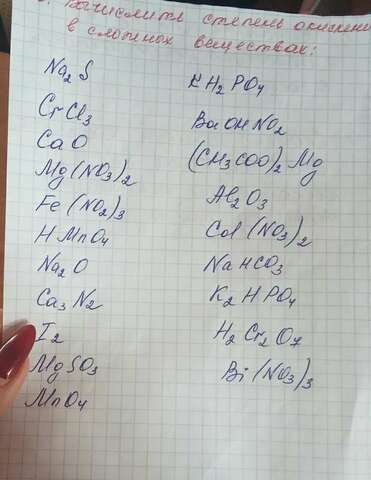 Вычислить степень окислени
в сложных веществах:
Na2S
CrCl3
CaO
Mg(NO3)2
Fe(NO2)3
HMnO4
Na2O
Ca3N2
I2
MgSO3
MnO4
KH2PO4
BaOHNO2
(CH3COO)2Mg
Al2O3
Col(NO3)2
NaHCO3
K2HPO4
H2Cr2O7
Bi(NO3)3